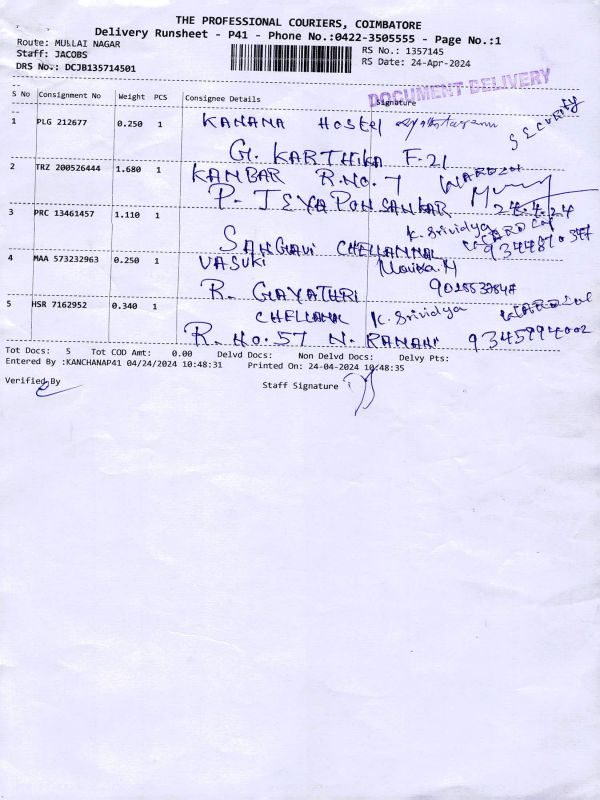 THE PROFESSIONAL COURIERS, COIMBATORE
Delivery Runsheet - P41 - Phone No.:0422-3505555 - Page No.:1
Route: MULLAI NAGAR
RS No.: 1357145
Staff: JACOBS
RS Date: 24-Apr-2024
DRS No.: DCJB135714501
DOCUMENT DELIVERY
S No Consignment No Weight PCS Consignee Details Signature
1 PLG 212677 0.250 1 KANANA HOSTEL SECURITY
G. KARTHIKA F-21
2 TRZ 200526444 1.680 1 KANBAR R.NO. 7
P. JEYA PON SANKAR 24.4.24
3 PRC 13461457 1.110 1 K. Srividya
SANGAVI CHELLAMMAL
4 MAA 573232963 0.250 1 VASUKI
R. GAYATHRI
5 HSR 7162952 0.340 1 K. Srividya
R. No. 57 N. RANANI 9345994002
Tot Docs: 5 Tot COD Amt: 0.00 Delvd Docs: Non Delvd Docs: Delvy Pts:
Entered By :KANCHANAP41 04/24/2024 10:48:31 Printed On: 24-04-2024 10:48:35
Verified By Staff Signature